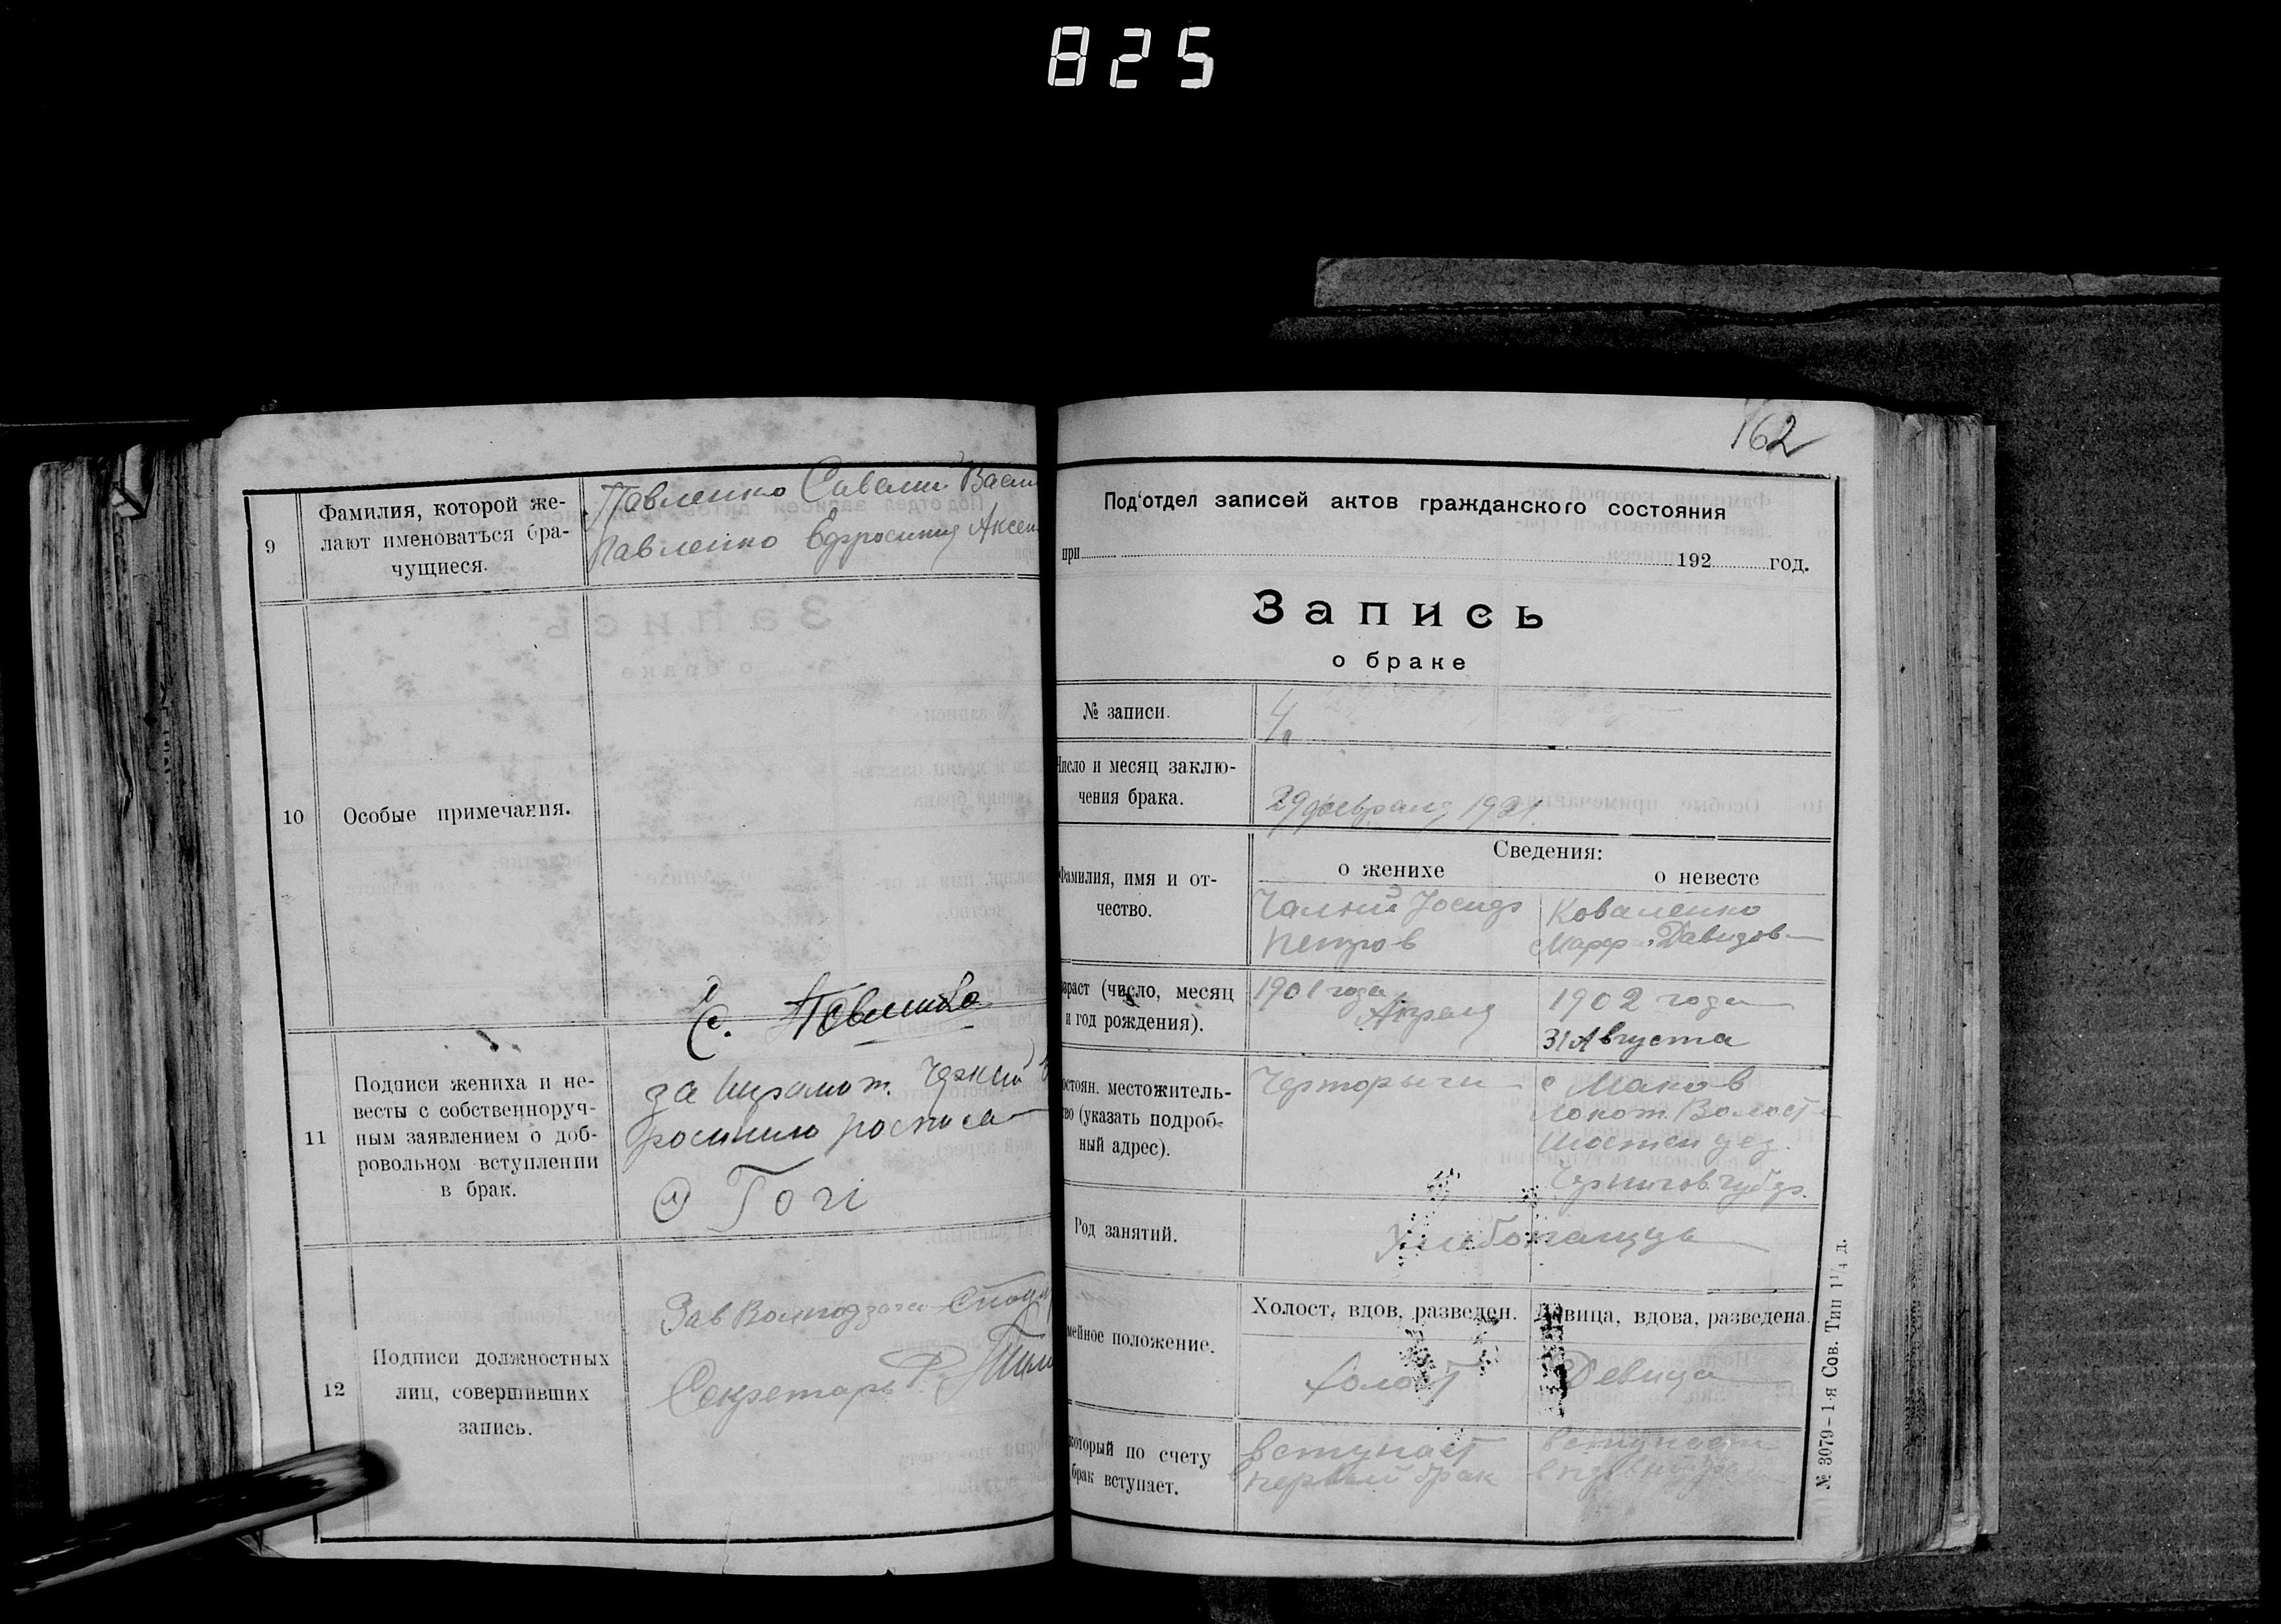 825
9
Фамилия, которой же-
лают именоваться бра-
чущиеся.
Павленко Васи
Павленко Ефросиния Аксен
10
Особые примечания.
11
Подписи жениха и не-
весты с собственноруч-
ным заявлением о доб-
ровольном вступлении
в брак.
за
росинию росписа
12
Подписи должностных
лиц, совершивших
запись.
Зав
Секретарь
162
Под‘отдел записей актов гражданского состояния
при 192 год.
Запись
о браке
№ записи.
4
Число и месяц заклю-
чения брака.
29 февраля 1921
Сведения:
о женихе
о невесте
Фамилия, имя и от-
чество.
Чалый Иосиф
Петров
Коваленко
Марф. Давидов
зраст (число, месяц
и год рождения).
1901 года
Апреля
1902 года
31 Августа
остоян. местожитель-
тво (указать подроб-
ный адрес).
с Маков
Локот. Волост
Чернигов. губ
Род занятий.
мейное положение.
Холост, вдов, разведен.
Девица, вдова, разведена.
Холост
Девица
который по счету
брак вступает.
вступает
первый брак
вступает
№ 3079-1-я Сов. Тип 1¼ д.